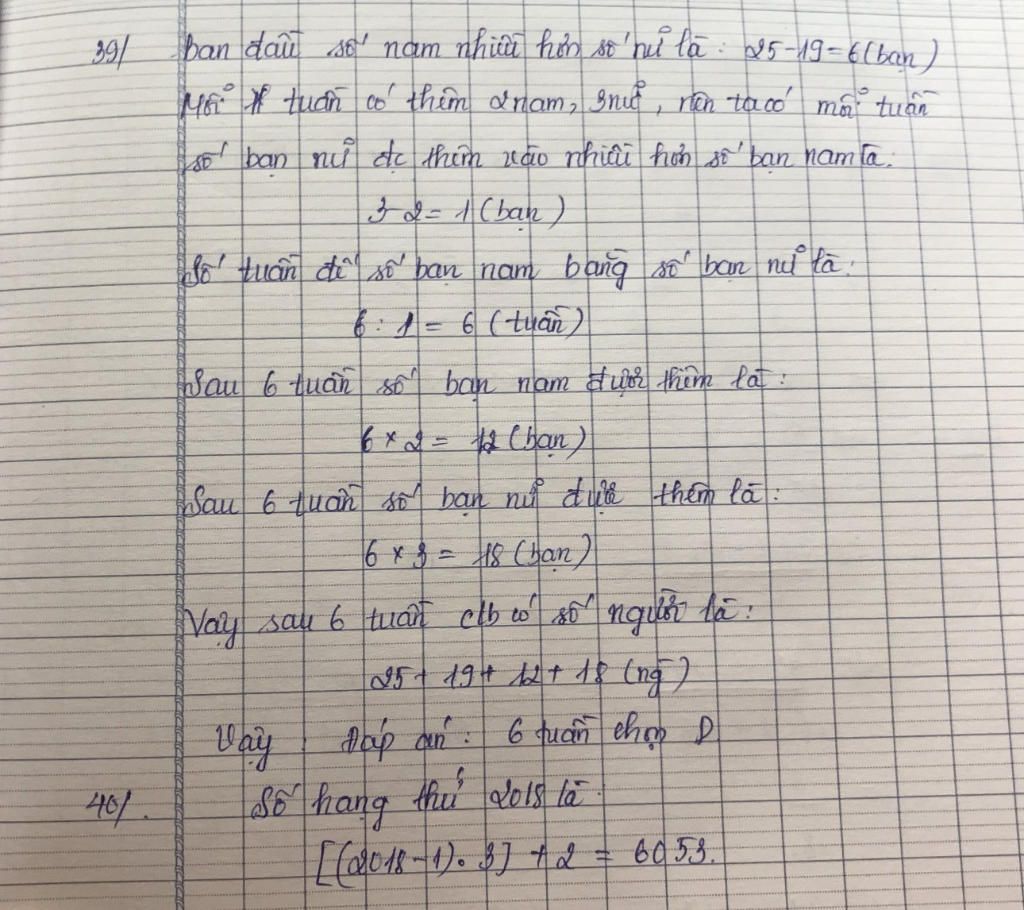 39/ ban đầu số nam nhiều hơn số nữ là: 25-19=6(bạn)
Mỗi tuần có thêm 2nam, 3nữ, nên ta có mỗi tuần
số bạn nữ đc thêm vào nhiều hơn số bạn nam là:
3-2=1(bạn)
Số tuần để số bạn nam bằng số bạn nữ là:
6:1=6(tuần)
Sau 6 tuần số bạn nam được thêm là:
6×2=12(bạn)
Sau 6 tuần số bạn nữ được thêm là:
6×3=18(bạn)
Vậy sau 6 tuần clb có số người là:
25+19+12+18(ng)
Vậy : Đáp án: 6 tuần chọn D
40/. Số hạng thứ 2018 là
[(2018-1).3]+2=6053.